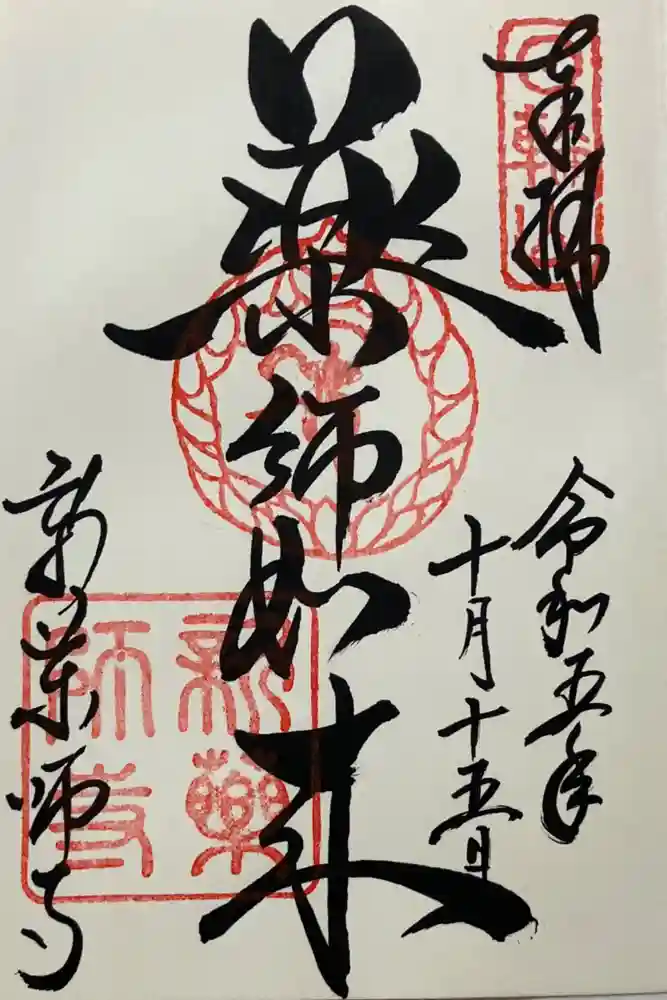 奉拝
令和五年
十月十五日
薬師如来
新薬師寺
新薬
師寺